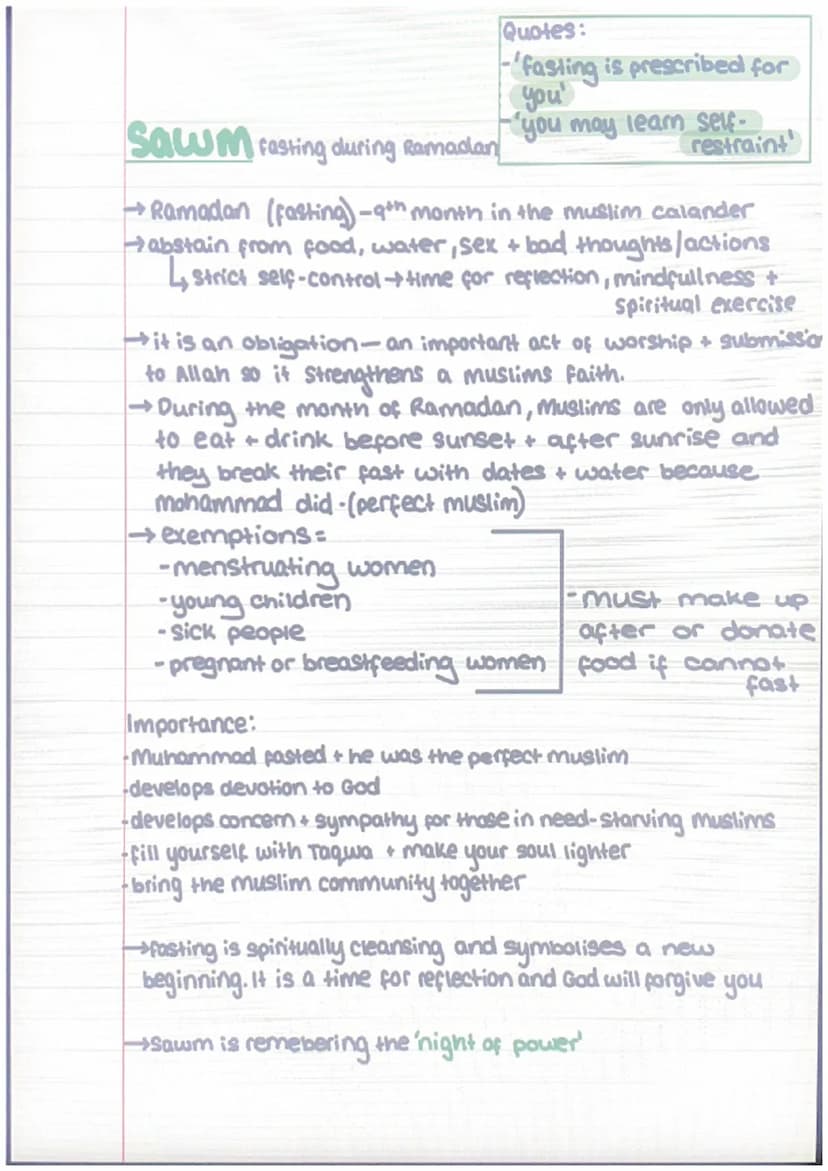 Quotes:
-'fasting is prescribed for
you'
-'you may learn self-
restraint'
Sawm fasting during Ramadan
→ Ramadan (fasting) - 9th month in the muslim calander
→ abstain from food, water, sex + bad thoughts/actions
↳ strict self-control → time for reflection, mindfullness +
spiritual exercise
→ it is an obligation — an important act of worship + submission
to Allah so it strengthens a muslims faith.
→ During the month of Ramadan, Muslims are only allowed
to eat + drink before sunset + after sunrise and
they break their fast with dates + water because
mohammad did - (perfect muslim)
→ exemptions =
- menstruating women
- young children
- sick people
- pregnant or breastfeeding women
- must make up
after or donate
food if cannot
fast
Importance:
- Muhammad fasted + he was the perfect muslim
- develops devotion to God
- develops concern + sympathy for those in need - starving Muslims
- fill yourself with Taqwa + make your soul lighter
- bring the muslim community together
→ fasting is spiritually cleansing and symbolises a new
beginning. It is a time for reflection and God will forgive you
→ Sawm is remebering the 'night of power'